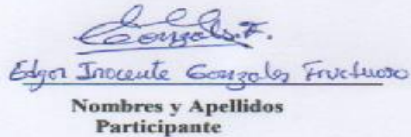 Gonzales F.
Edgar Inocente Gonzales Fructuoso
Nombres y Apellidos
Participante